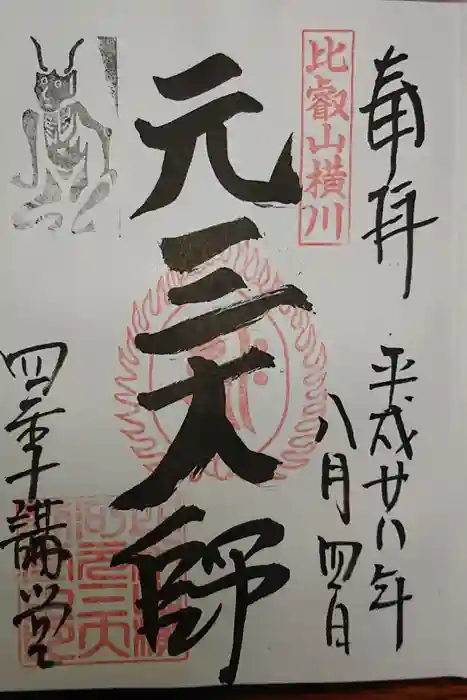 奉拝
比叡山横川
平成廿八年
八月四日
元三大師
四季講堂